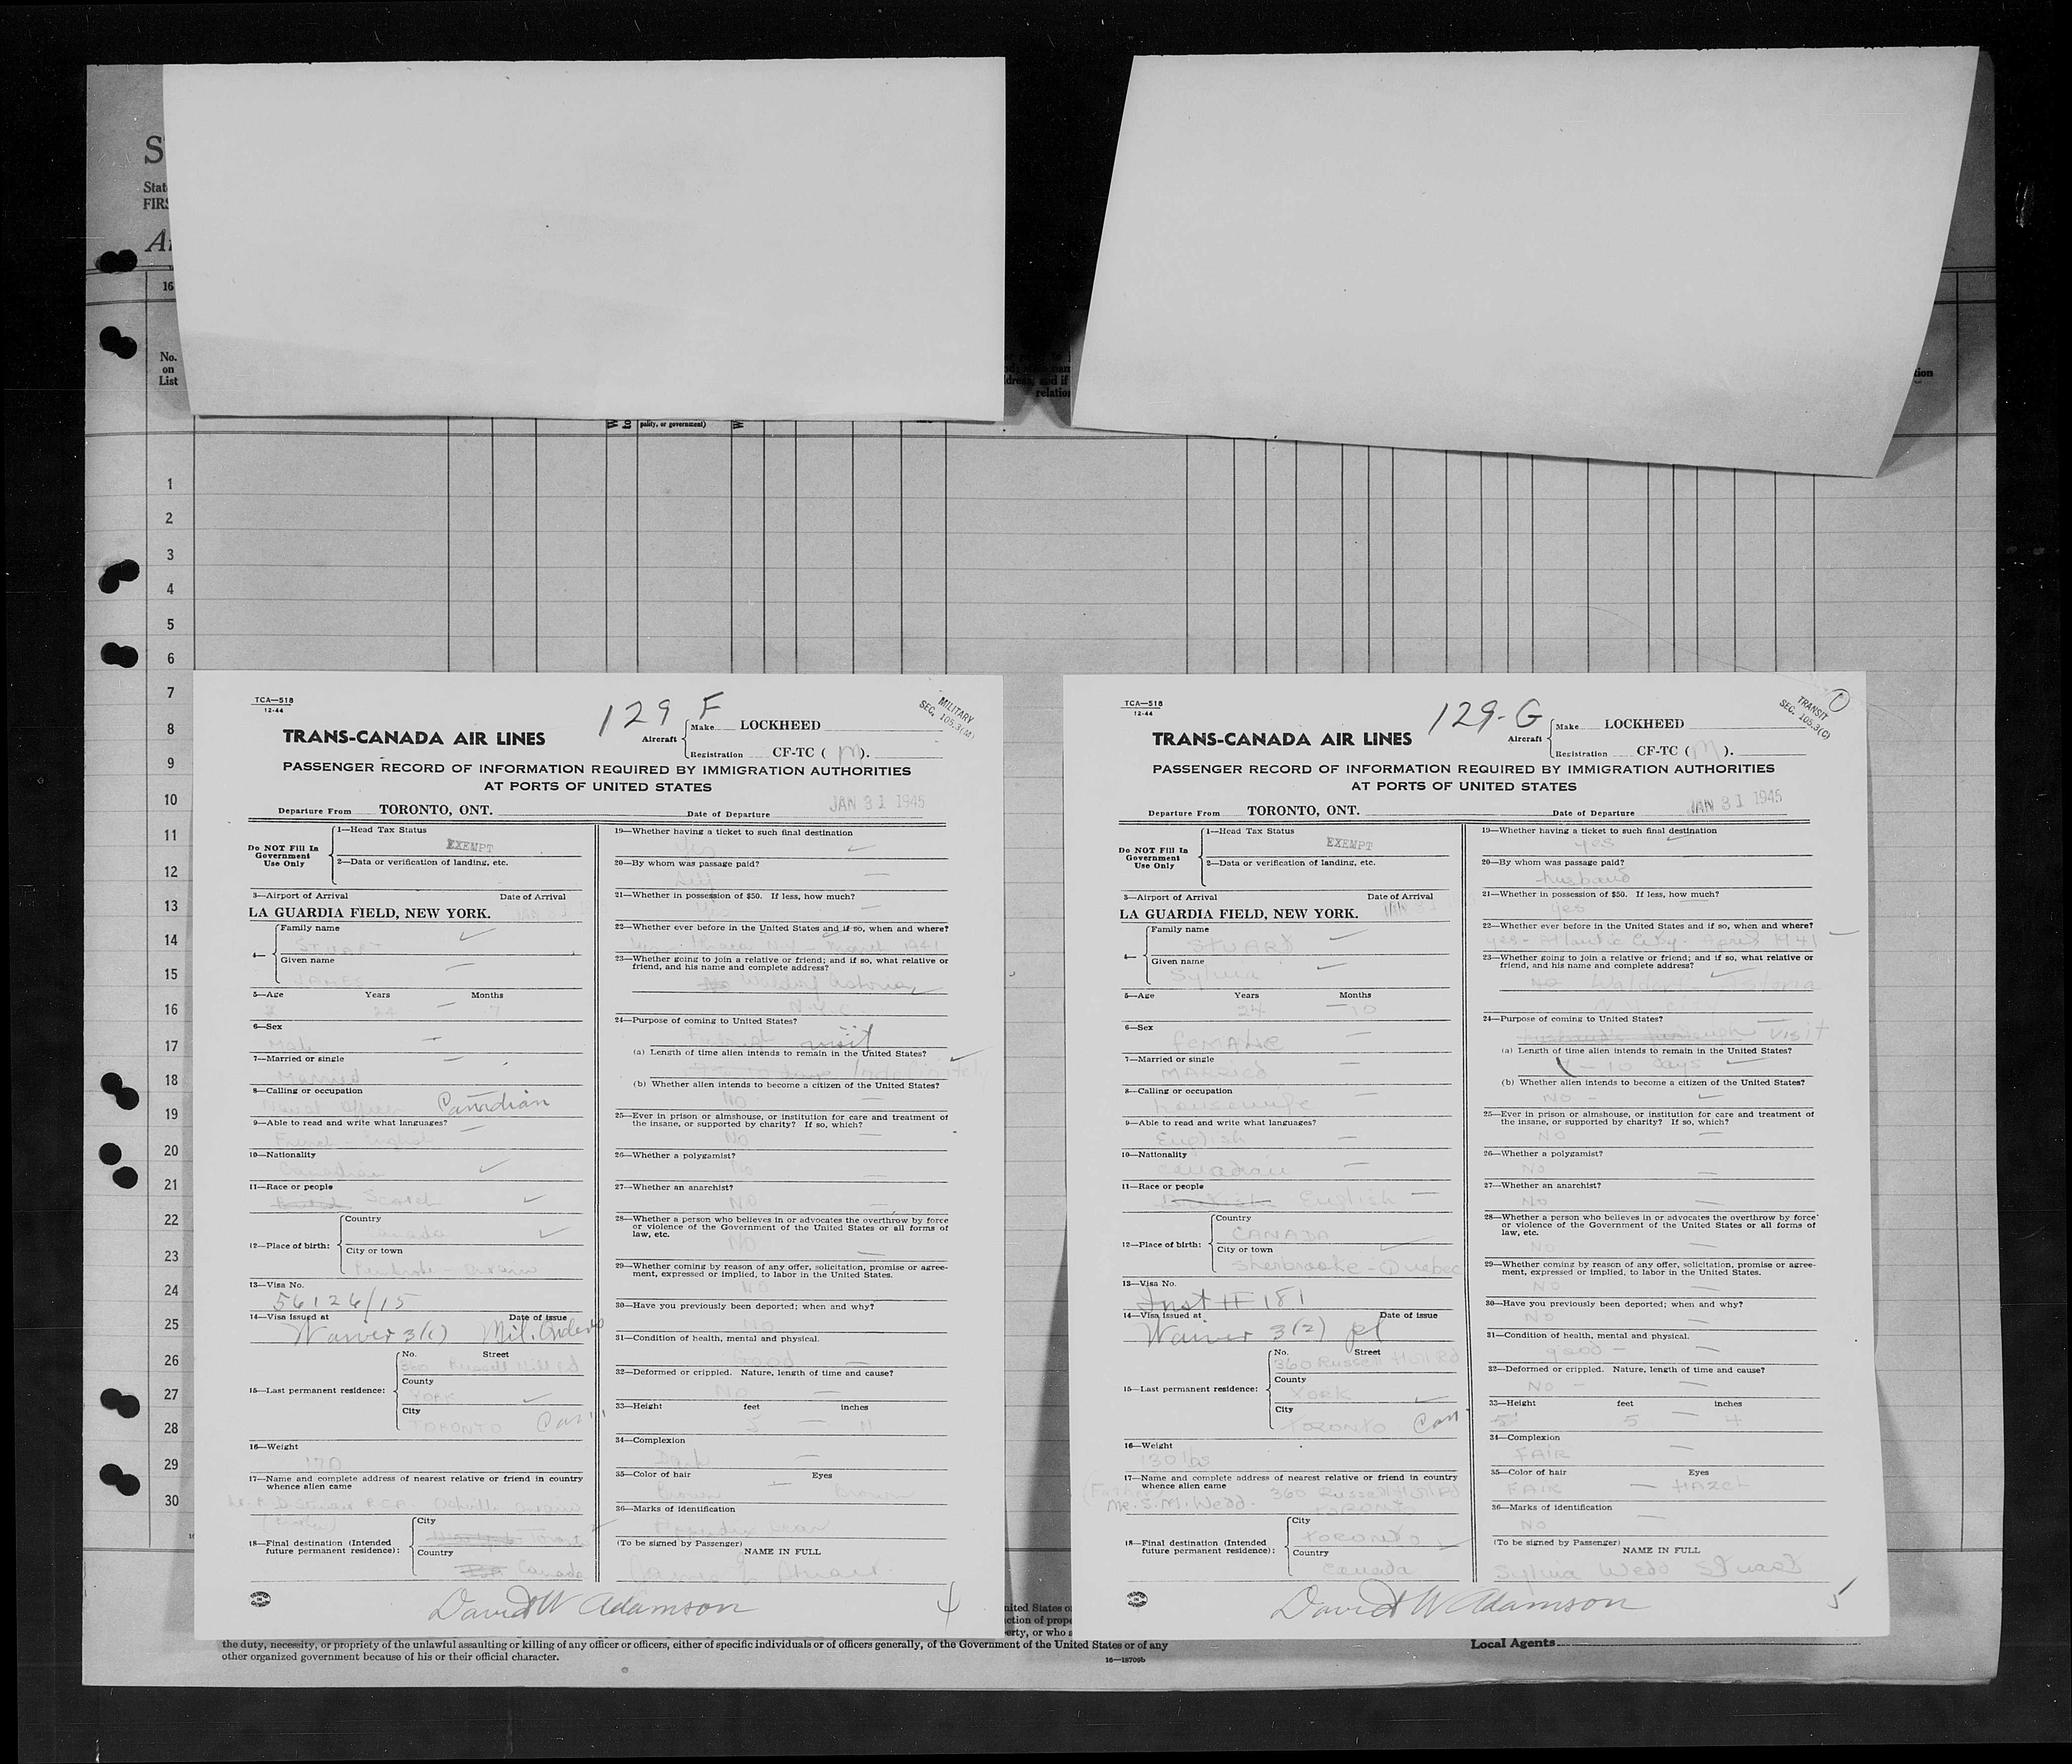 S
State
FIRS
16
No.
on
List
relation
polity, or government)
1
2
3
4
5
6
7
8
9
10
11
12
13
14
15
16
17
18
19
20
21
22
23
24
25
26
27
28
29
30
TCA—518
12-44
129 F
MILITARY
SEC. 105.3(M)
TRANS-CANADA AIR LINES
Aircraft
Make LOCKHEED
Registration CF-TC ( M ).
PASSENGER RECORD OF INFORMATION REQUIRED BY IMMIGRATION AUTHORITIES
AT PORTS OF UNITED STATES
Departure From TORONTO, ONT. Date of Departure JAN 31 1945
Do NOT Fill In
Government
Use Only
1—Head Tax Status
EXEMPT
2—Data or verification of landing, etc.
3—Airport of Arrival Date of Arrival
LA GUARDIA FIELD, NEW YORK. JAN 31
4—
Family name
STUART
Given name
JAMES
5—Age Years Months
24 7
6—Sex
Male
7—Married or single
Married
8—Calling or occupation
Naval Officer Canadian
9—Able to read and write what languages?
French - English
10—Nationality
Canadian
11—Race or people
British Scotch
12—Place of birth:
Country
Canada
City or town
Pembroke - Ontario
13—Visa No.
56126/15
14—Visa issued at Date of issue
Waiver 3(1) Mil. Orders
15—Last permanent residence:
No. Street
360 Russell Hill Rd
County
YORK
City
TORONTO Can.
16—Weight
170
17—Name and complete address of nearest relative or friend in country
whence alien came
Stuart R.C.A. Oakville Ontario
18—Final destination (Intended
future permanent residence):
City
Toronto
Country
Canada
19—Whether having a ticket to such final destination
Yes
20—By whom was passage paid?
Self
21—Whether in possession of $50. If less, how much?
Yes
22—Whether ever before in the United States and if so, when and where?
Yes Ithaca N.Y. March 1941
23—Whether going to join a relative or friend; and if so, what relative or
friend, and his name and complete address?
No Waldorf Astoria
N.Y.C.
24—Purpose of coming to United States?
visit
(a) Length of time alien intends to remain in the United States?
Indefinitely
(b) Whether alien intends to become a citizen of the United States?
NO
25—Ever in prison or almshouse, or institution for care and treatment of
the insane, or supported by charity? If so, which?
NO
26—Whether a polygamist?
No
27—Whether an anarchist?
NO
28—Whether a person who believes in or advocates the overthrow by force
or violence of the Government of the United States or all forms of
law, etc.
NO
29—Whether coming by reason of any offer, solicitation, promise or agree-
ment, expressed or implied, to labor in the United States.
NO
30—Have you previously been deported; when and why?
NO
31—Condition of health, mental and physical.
Good
32—Deformed or crippled. Nature, length of time and cause?
NO
33—Height feet inches
5 11
34—Complexion
Dark
35—Color of hair Eyes
Brown Brown
36—Marks of identification
Appendix scar
(To be signed by Passenger)
NAME IN FULL
James Stuart
David W Adamson
4
TCA—518
12-44
129-G
TRANSIT
SEC. 105.3(C)
TRANS-CANADA AIR LINES
Aircraft
Make LOCKHEED
Registration CF-TC ( M ).
PASSENGER RECORD OF INFORMATION REQUIRED BY IMMIGRATION AUTHORITIES
AT PORTS OF UNITED STATES
Departure From TORONTO, ONT. Date of Departure JAN 31 1945
Do NOT Fill In
Government
Use Only
1—Head Tax Status
EXEMPT
2—Data or verification of landing, etc.
3—Airport of Arrival Date of Arrival
LA GUARDIA FIELD, NEW YORK. JAN 31
4—
Family name
STUART
Given name
Sylvia
5—Age Years Months
24 10
6—Sex
FEMALE
7—Married or single
MARRIED
8—Calling or occupation
housewife
9—Able to read and write what languages?
English
10—Nationality
Canadian
11—Race or people
British English
12—Place of birth:
Country
CANADA
City or town
Sherbrooke - Quebec
13—Visa No.
Inst # 181
14—Visa issued at Date of issue
Waiver 3(2)
15—Last permanent residence:
No. Street
360 Russell Hill Rd
County
YORK
City
TORONTO Can
16—Weight
130 lbs
17—Name and complete address of nearest relative or friend in country
whence alien came
(Father)
Mr. S. M. Wedd. 360 Russell Hill Rd
TORONTO
18—Final destination (Intended
future permanent residence):
City
TORONTO
Country
Canada
19—Whether having a ticket to such final destination
yes
20—By whom was passage paid?
husband
21—Whether in possession of $50. If less, how much?
yes
22—Whether ever before in the United States and if so, when and where?
yes - Atlantic City - April 1941
23—Whether going to join a relative or friend; and if so, what relative or
friend, and his name and complete address?
no Waldorf Astoria
24—Purpose of coming to United States?
visit
(a) Length of time alien intends to remain in the United States?
10 days
(b) Whether alien intends to become a citizen of the United States?
NO -
25—Ever in prison or almshouse, or institution for care and treatment of
the insane, or supported by charity? If so, which?
NO
26—Whether a polygamist?
NO
27—Whether an anarchist?
NO
28—Whether a person who believes in or advocates the overthrow by force
or violence of the Government of the United States or all forms of
law, etc.
NO
29—Whether coming by reason of any offer, solicitation, promise or agree-
ment, expressed or implied, to labor in the United States.
NO
30—Have you previously been deported; when and why?
NO
31—Condition of health, mental and physical.
good -
32—Deformed or crippled. Nature, length of time and cause?
NO -
33—Height feet inches
5 4
34—Complexion
FAIR
35—Color of hair Eyes
FAIR HAZEL
36—Marks of identification
NO
(To be signed by Passenger)
NAME IN FULL
Sylvia Wedd Stuart
David W Adamson
5
the duty, necessity, or propriety of the unlawful assaulting or killing of any officer or officers, either of specific individuals or of officers generally, of the Government of the United States or of any
other organized government because of his or their official character.
16—18709b
Local Agents